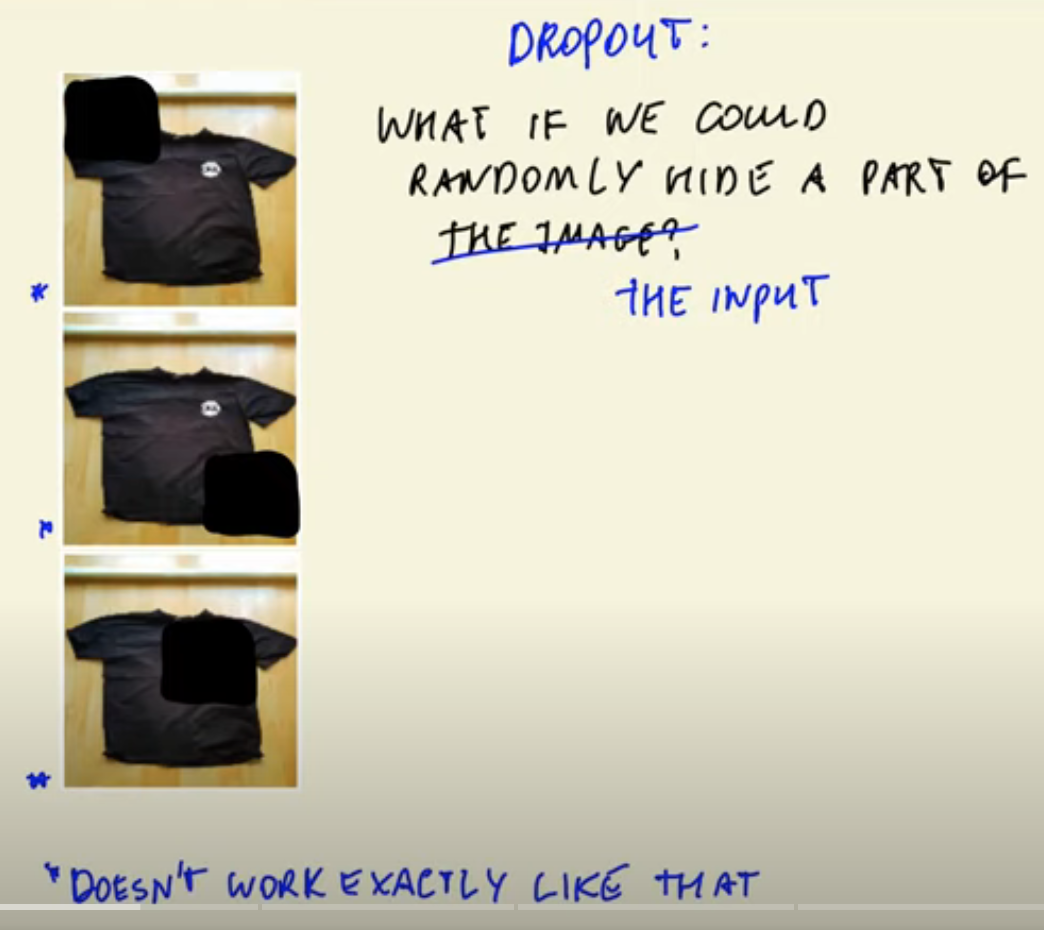 DROPOUT:
WHAT IF WE COULD
RANDOMLY HIDE A PART OF
THE IMAGE?
THE INPUT
*
*
*
*DOESN'T WORK EXACTLY LIKE THAT